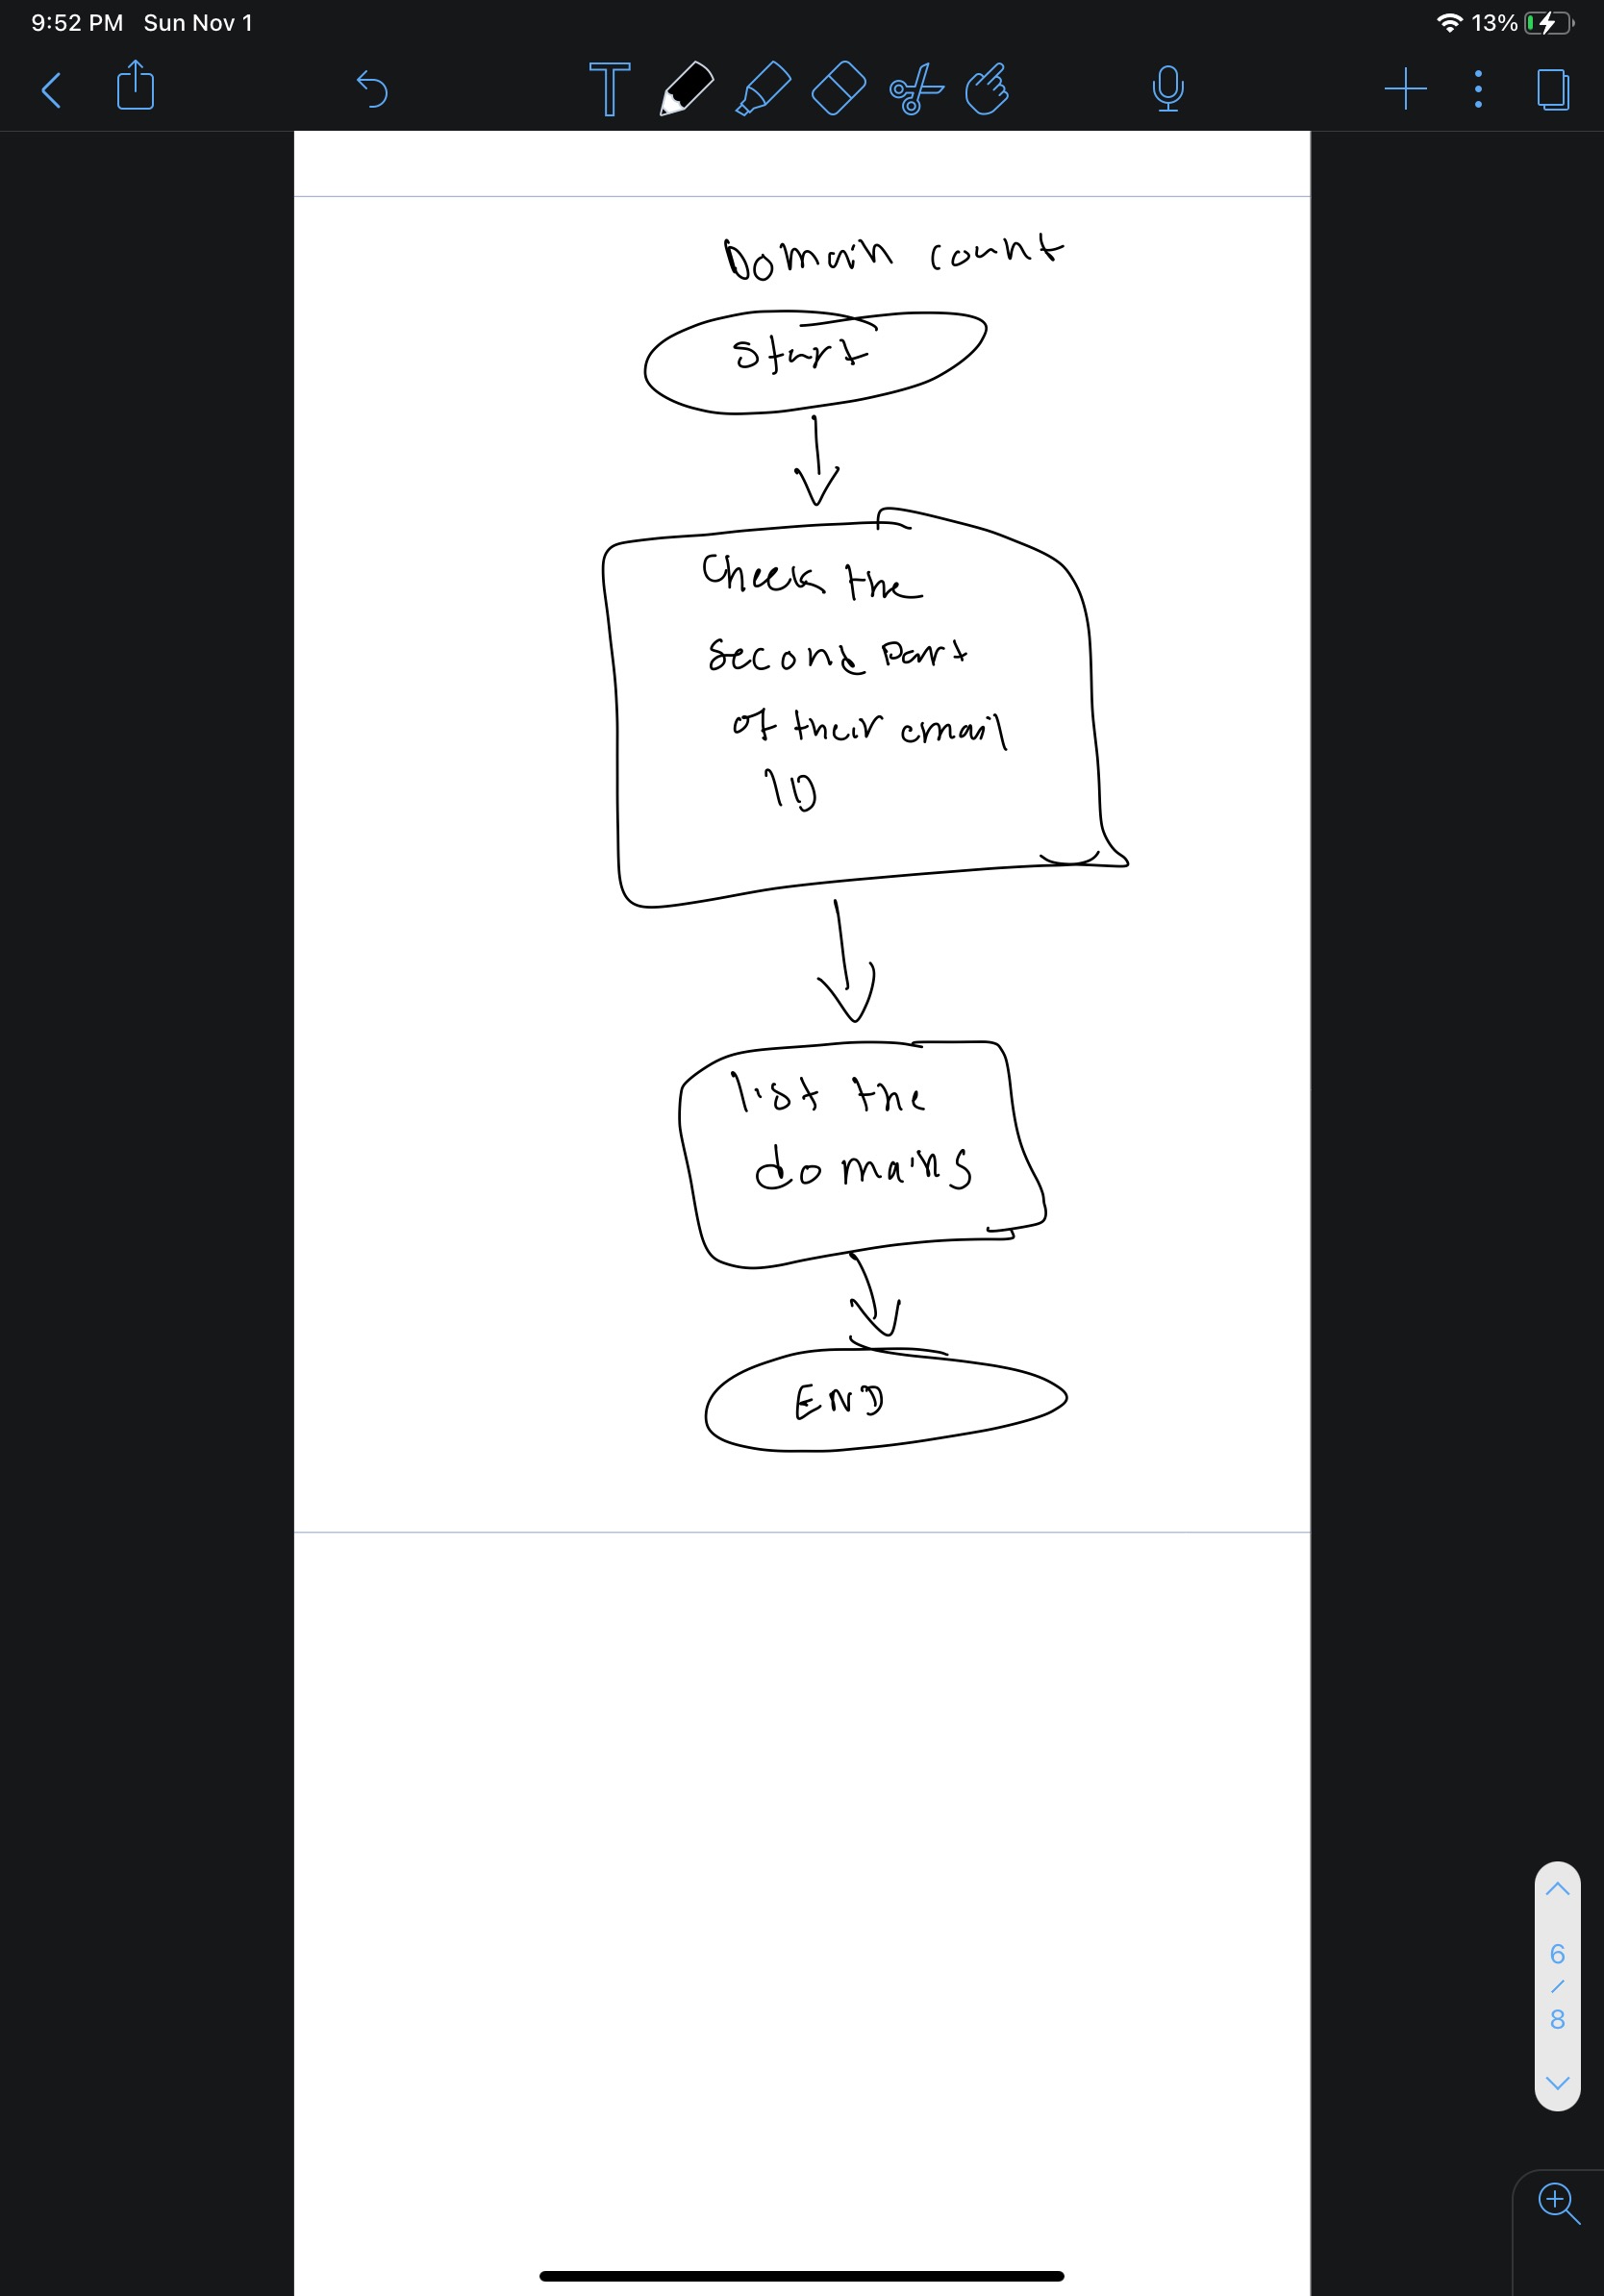 9:52 PM Sun Nov 1
13%
T
Domain count
Start
Check the
second part
of their email
ID
list the
domains
END
6
/
8